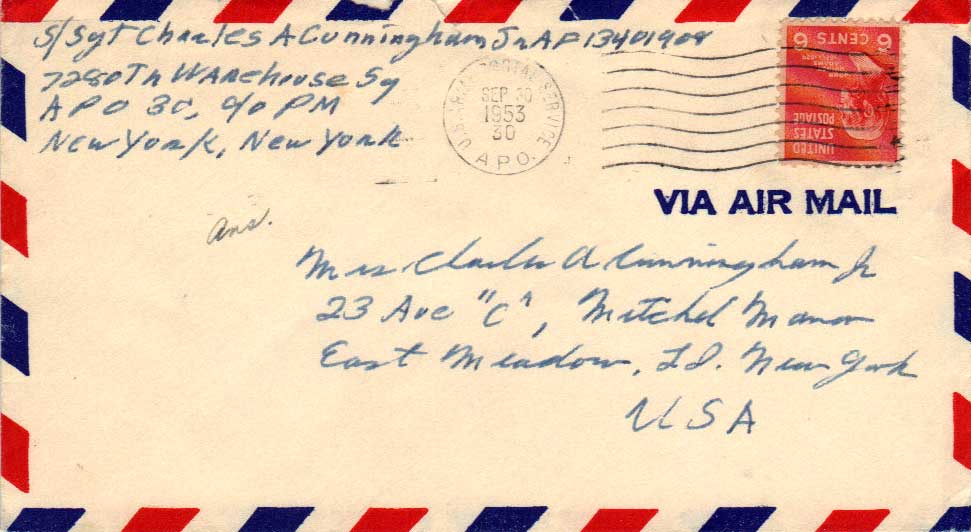 S/Sgt Charles A Cunningham Jr AF 13401908
7280Th Warehouse Sq
APO 30, c/o PM
New York, New York
U.S. ARMY POSTAL SERVICE
SEP 30
1953
30
A.P.O.
6 CENTS 6
JOHN QUINCY ADAMS
UNITED STATES POSTAGE
VIA AIR MAIL
Ans.
Mrs Charles A Cunningham Jr
23 Ave "C", Mitchel Manor
East Meadow, L I. New York
USA